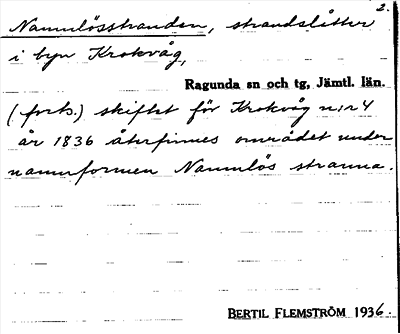 2.
Namnlösstranden, strandslåtter
i byn Krokvåg,
Ragunda sn och tg, Jämtl. län.
(forts.) skiftet för Krokvåg n:r 4
år 1836 återfinnes området under
namnformen Namnlös stranna.
BERTIL FLEMSTRÖM 1936.